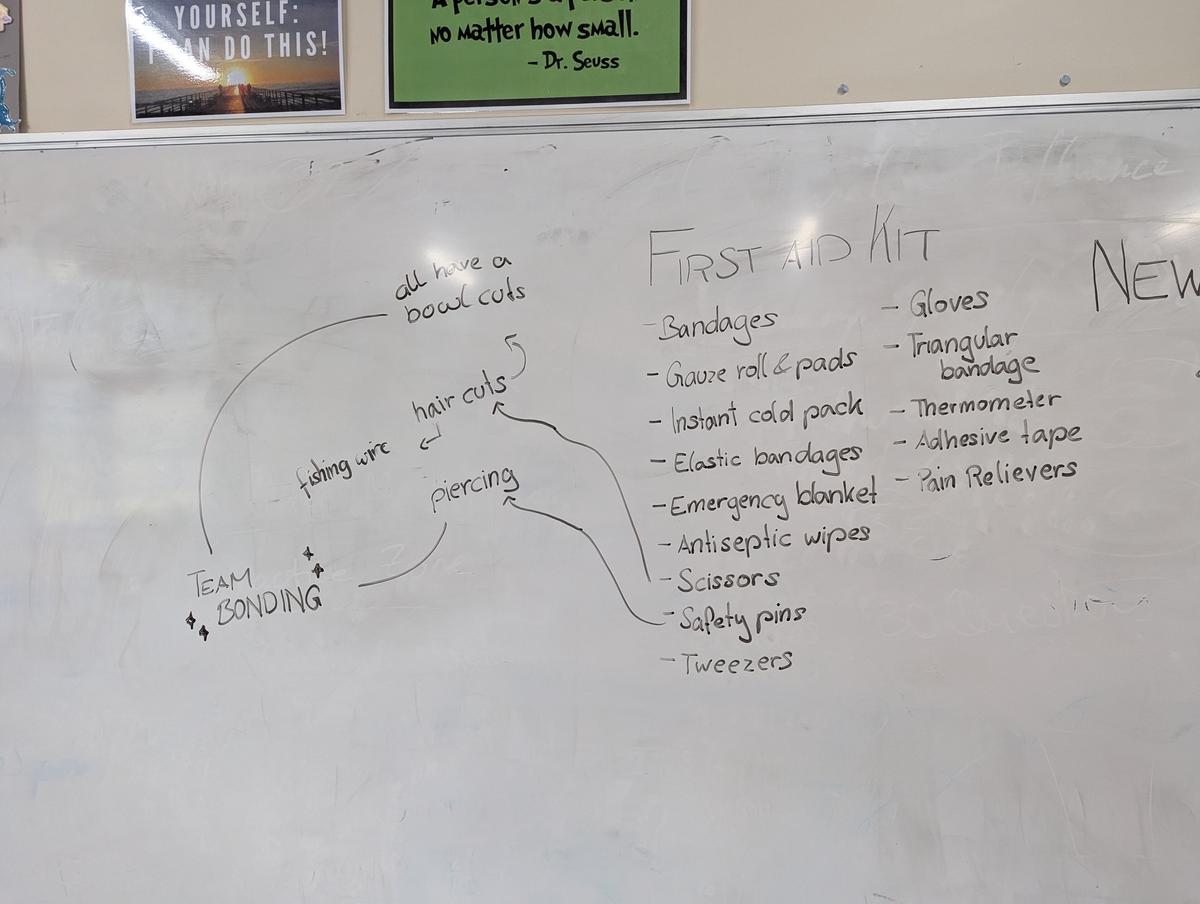 YOURSELF:
I CAN DO THIS!
NO MATTER HOW SMALL.
- Dr. Seuss
all have a
bowl cuts
hair cuts
fishing wire
piercing
TEAM
BONDING
FIRST AID KIT
- Bandages
- Gauze roll & pads
- Instant cold pack
- Elastic bandages
- Emergency blanket
- Antiseptic wipes
- Scissors
- Safety pins
- Tweezers
- Gloves
- Triangular
bandage
- Thermometer
- Adhesive tape
- Pain Relievers
NEW